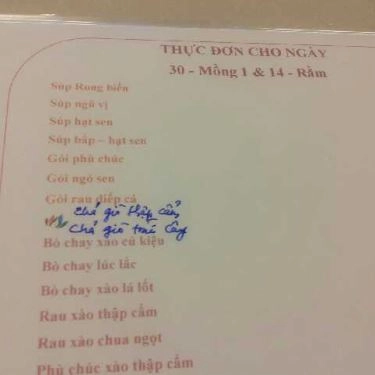 THỰC ĐƠN CHO NGÀY
30 - Mồng 1 & 14 - Rằm
Súp Rong biển
Súp ngũ vị
Súp hạt sen
Súp bắp – hạt sen
Gỏi phù chúc
Gỏi ngó sen
Gỏi rau diếp cá
Chả giò thập cẩm
Chả giò trái cây
Bò chay xào củ kiệu
Bò chay lúc lắc
Bò chay xào lá lốt
Rau xào thập cẩm
Rau xào chua ngọt
Phù chúc xào thập cẩm